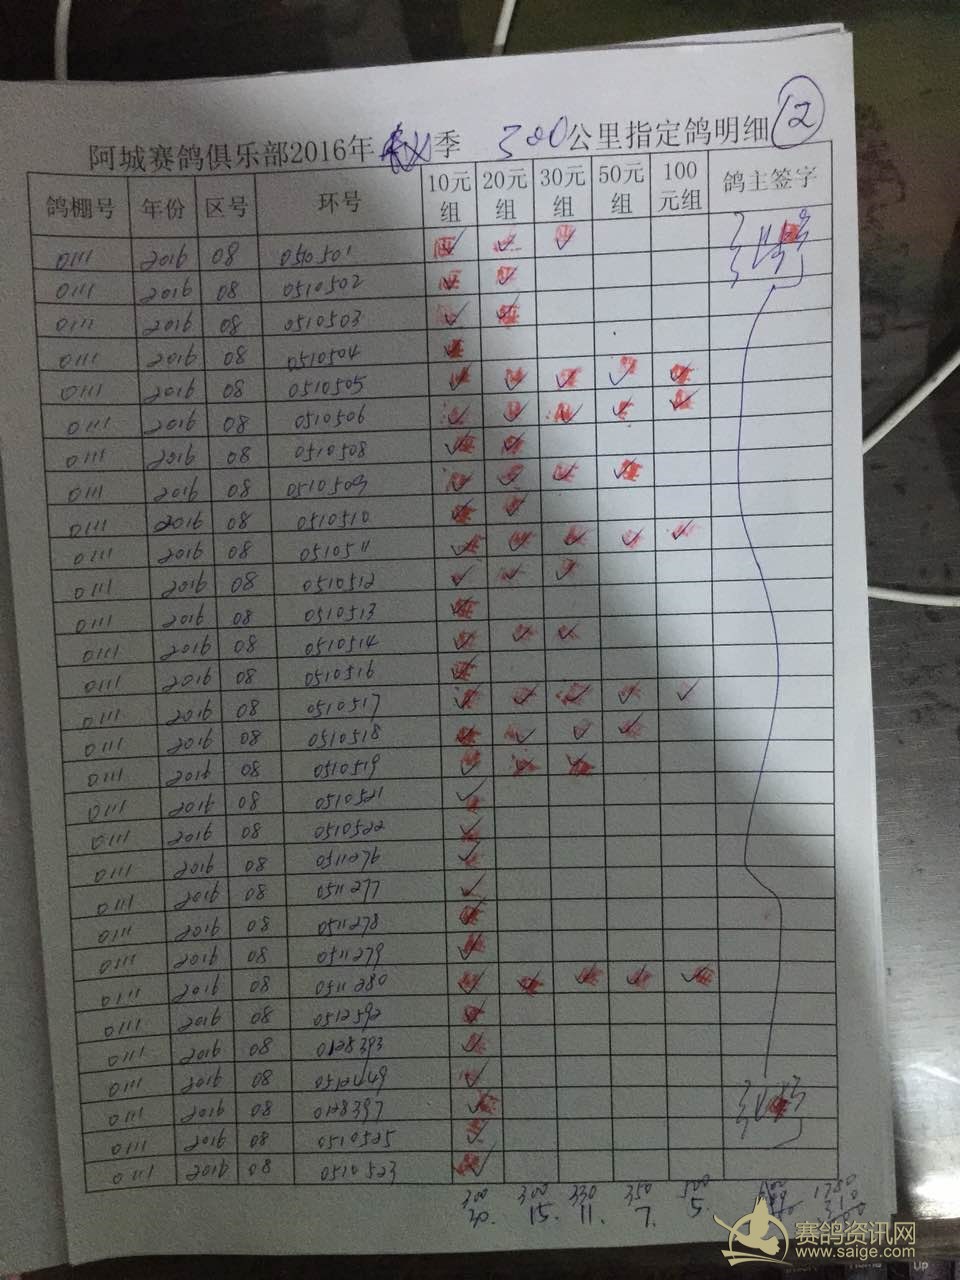 阿城赛鸽俱乐部2016年秋季 300公里指定鸽明细 ②
鸽棚号 年份 区号 环号 10元组 20元组 30元组 50元组 100元组 鸽主签字
0111 2016 08 0510501 ✓ ✓ ✓
0111 2016 08 0510502 ✓ ✓
0111 2016 08 0510503 ✓ ✓
0111 2016 08 0510504 ✓
0111 2016 08 0510505 ✓ ✓ ✓ ✓ ✓
0111 2016 08 0510506 ✓ ✓ ✓ ✓ ✓
0111 2016 08 0510508 ✓ ✓
0111 2016 08 0510509 ✓ ✓ ✓ ✓
0111 2016 08 0510510 ✓ ✓
0111 2016 08 0510511 ✓ ✓ ✓ ✓ ✓
0111 2016 08 0510512 ✓ ✓ ✓
0111 2016 08 0510513 ✓
0111 2016 08 0510514 ✓ ✓ ✓
0111 2016 08 0510516 ✓
0111 2016 08 0510517 ✓ ✓ ✓ ✓ ✓
0111 2016 08 0510518 ✓ ✓ ✓ ✓
0111 2016 08 0510519 ✓ ✓ ✓
0111 2016 08 0510521 ✓
0111 2016 08 0510522 ✓
0111 2016 08 0511276 ✓
0111 2016 08 0511277 ✓
0111 2016 08 0511278 ✓
0111 2016 08 0511279 ✓
0111 2016 08 0511280 ✓ ✓ ✓ ✓ ✓
0111 2016 08 0512592 ✓
0111 2016 08 0128393 ✓
0111 2016 08 0512449 ✓
0111 2016 08 0128397 ✓
0111 2016 08 0510525 ✓
0111 2016 08 0510523 ✓
300 300 330 350 500 1780
30. 15. 11. 7. 5.
赛鸽资讯网
www.saige.com